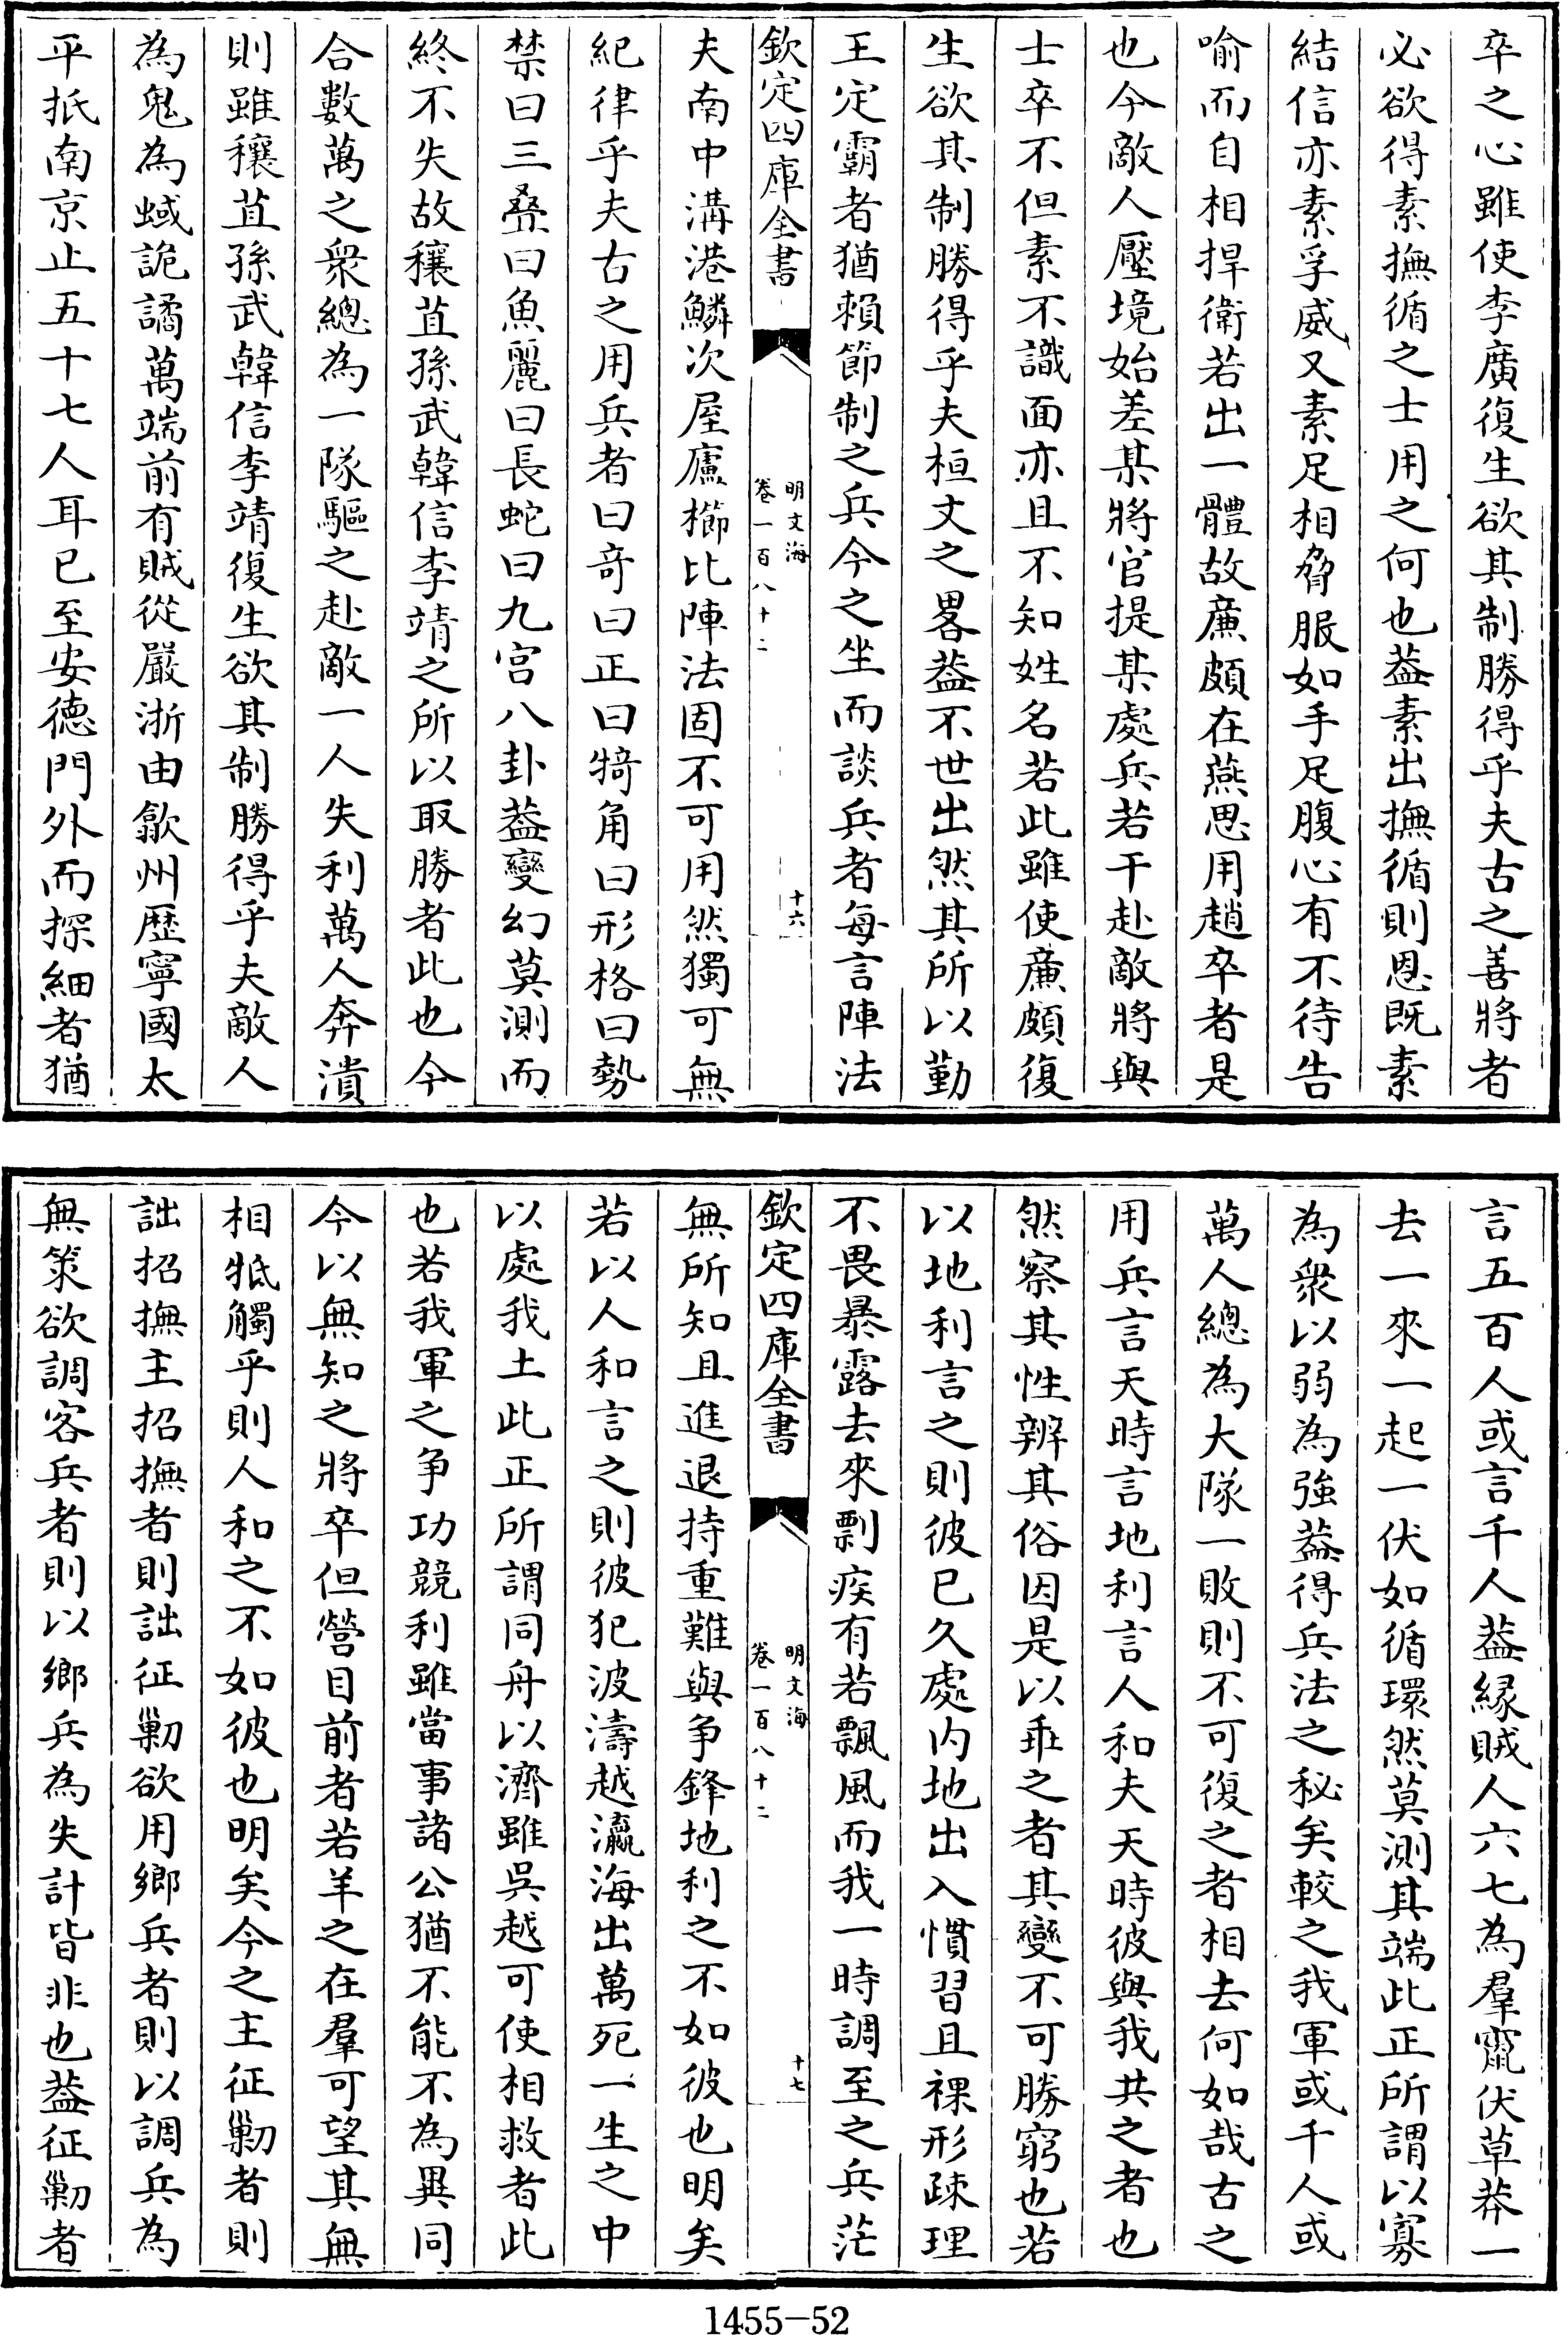 卒之心雖使李廣復生欲其制勝得乎夫古之善將者
必欲得素撫循之士用之何也葢素出撫循則恩既素
結信亦素孚威又素足相脅服如手足腹心有不待告
喻而自相捍衛若出一體故亷頗在燕思用趙卒者是
也今敵人壓境始差某將官提某處兵若干赴敵將與
士卒不但素不識面亦且不知姓名若此雖使亷頗復
生欲其制勝得乎夫桓文之畧葢不世出然其所以勤
王定霸者猶賴節制之兵今之坐而談兵者每言陣法
欽定四庫全書
明文海
卷一百八十二
十六
夫南中溝港鱗次屋廬櫛比陣法固不可用然獨可無
紀律乎夫古之用兵者曰竒曰正曰犄角曰形格曰勢
禁曰三叠曰魚麗曰長蛇曰九宫八卦葢變幻莫測而
終不失故穰苴孫武韓信李靖之所以取勝者此也今
合數萬之衆總為一隊驅之赴敵一人失利萬人奔潰
則雖穰苴孫武韓信李靖復生欲其制勝得乎夫敵人
為鬼為蜮詭譎萬端前有賊從嚴浙由歙州歴寧國太
平抵南京止五十七人耳已至安德門外而探細者猶
言五百人或言千人葢縁賊人六七為羣竄伏草莽一
去一來一起一伏如循環然莫測其端此正所謂以寡
為衆以弱為強葢得兵法之秘矣較之我軍或千人或
萬人總為大隊一敗則不可復之者相去何如哉古之
用兵言天時言地利言人和夫天時彼與我共之者也
然察其性辨其俗因是以乖之者其變不可勝窮也若
以地利言之則彼已久處内地出入慣習且裸形疎理
不畏暴露去來剽疾有若飄風而我一時調至之兵茫
欽定四庫全書
明文海
卷一百八十二
十七
無所知且進退持重難與争鋒地利之不如彼也明矣
若以人和言之則彼犯波濤越瀛海出萬死一生之中
以處我土此正所謂同舟以濟雖吳越可使相救者此
也若我軍之争功競利雖當事諸公猶不能不為異同
今以無知之將卒但營目前者若羊之在羣可望其無
相牴觸乎則人和之不如彼也明矣今之主征勦者則
詘招撫主招撫者則詘征勦欲用鄉兵者則以調兵為
無策欲調客兵者則以鄉兵為失計皆非也葢征勦者
1455-52